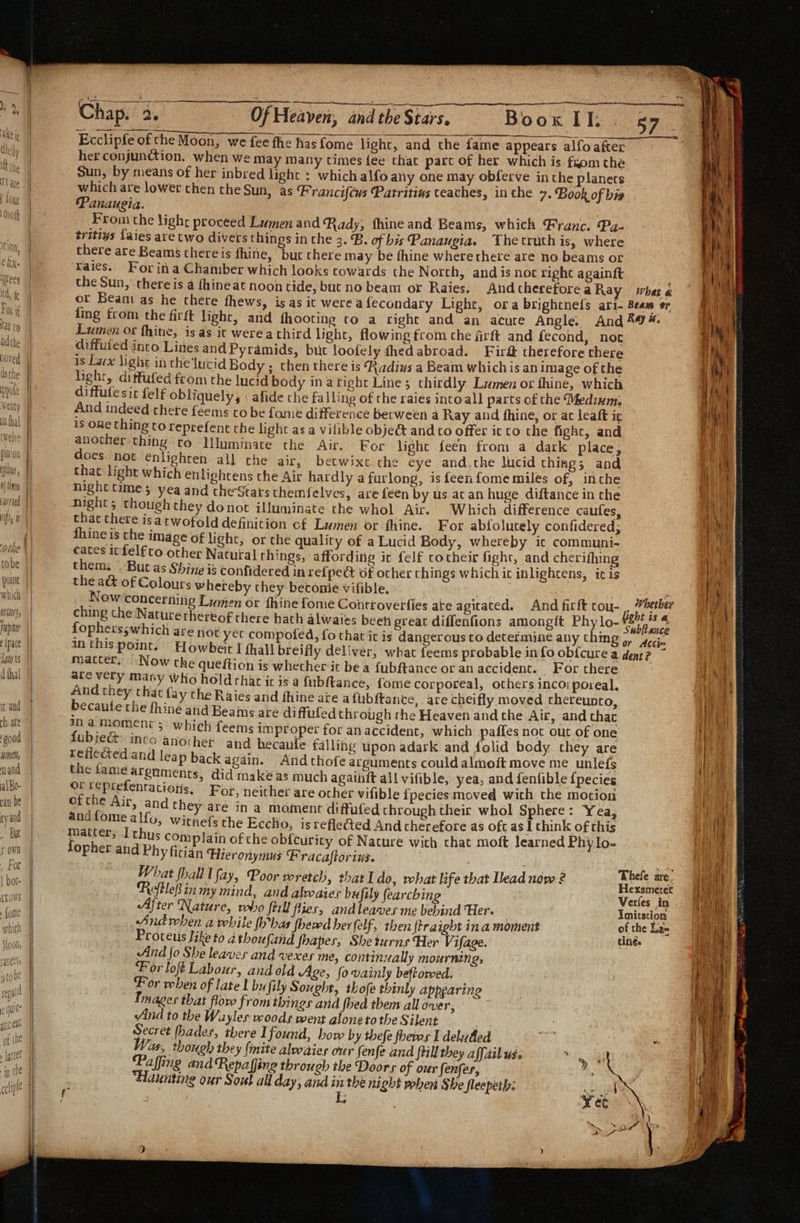 Chap. 2. Of Heaven, and the Stars. Book II. 57
Ecclipſe of the Moon, we ſee ſhe has ſome light, and the ſame appears alſo after
her conjunction. when we may many times ſee that part of her which is from the
Sun, by means of her inbred light : which alſo any one may obſerve in the planets
which are lower then the Sun, as Franciſcus Patritius teaches, in the 7. Book of his
Panaugia.
From the light proceed Lumen and Rady, ſhine and Beams, which Franc. Pa-
tritius ſaies are two divers things in the 3. B. of his Panaugia. The truth is, where
there are Beams there is ſhine, but there may be ſhine where there are no beams or
raies. For in a Chamber which looks towards the North, and is not right againſt
the Sun, there is a ſhine at noon tide, but no beam or Raies. And therefore a Ray
or Beam as he there ſhews, is as it were a ſecondary Light, or a brightneſs ari-
ſing from the firſt light, and ſhooting to a right and an acute Angle. And
What a
Beam or
Ray is.
Lumen or ſhine, is as it were a third light, flowing from the firſt and ſecond, not
diffuſed into Lines and Pyramids, but looſely ſhed abroad. Firſt therefore there
is Lux light in the lucid Body ; then there is Radius a Beam which is an image of the
light, diffuſed from the lucid body in a right Line ; thirdly Lumen or ſhine, which
diffuſes it ſelf obliquely, aſide the falling of the raies into all parts of the Medium.
And indeed there ſeems to be ſome difference between a Ray and ſhine, or at leaſt it
is one thing to repreſent the light as a viſible object and to offer it to the ſight, and
another thing to Illuminate the Air. For light ſeen from a dark place,
does not enlighten all the air, betwixt the eye and the lucid thing ; and
that light which enlightens the Air hardly a furlong, is ſeen ſome miles of, in the
night time ; yea and the Stars themſelves, are ſeen by us at an huge diſtance in the
night ; though they do not illuminate the whol Air. Which difference cauſes,
that there is a twofold definition of Lumen or ſhine. For abſolutely conſidered,
ſhine is the image of light, or the quality of a Lucid Body, whereby it communi-
cates it ſelf to other Natural things, affording it ſelf to their ſight, and cheriſhing
them. But as Shine is conſidered in reſpect of other things which it inlightens, it is
the act of Colours whereby they become viſible.
Now concerning Lumen or ſhine ſome Controverſies are agitated. And firſt tou-
ching the Nature thereof there hath alwaies been great diſſenſions amongſt Phylo-
ſophers, which are not yet compoſed, ſo that it is dangerous to determine any thing
in this point. Howbeit I ſhall breifly deliver, what ſeems probable in ſo obſcure a
Whether
light is a
Subſtance
or Acci-
dent ?
matter. Now the queſtion is whether it be a ſubſtance or an accident. For there
are very many who hold that it is a ſubſtance, ſome corporeal, others incorporeal.
And they that ſay the Raies and ſhine are a ſubſtance, are cheifly moved thereunto,
becauſe the ſhine and Beams are diffuſed through the Heaven and the Air, and that
in a moment ; which ſeems improper for an accident, which paſſes not out of one
ſubject into another and becauſe falling upon a dark and ſolid body they are
reflected and leap back again. And thoſe arguments could almoſt move me unleſs
the ſame arguments, did make as much againſt all viſible, yea, and ſenſible ſpecies
or repreſentations. For, neither are other viſible ſpecies moved with the motion
of the Air, and they are in a moment diffuſed through their whol Sphere : Yea,
and ſome alſo, witneſs the Eccho, is reflected And therefore as oft as I think of this
matter, I thus complain of the obſcurity of Nature with that moſt learned Phylo-
ſopher and Phyſitian Hieronymus Fracaſtorius.
What ſhall I ſay, Poor wretch, that I do, what life that I lead now ?
Reſtleſs in my mind, and alwaies buſily ſearching
After Nature, who ſtill flies, and leaves me behind Her.
And when a while ſh'has ſhewd her ſelf, then ſtraight in a moment
Theſe are
Hexameter
Verſes in
Imitation
of the La-
tine.
Proteus like to a thouſand ſhapes, She turns Her Viſage.
And ſo She leaves and vexes me, continually mourning,
For loſt Labour, and old Age, ſo vainly beſtowed.
For when of late I buſily Sought, thoſe thinly appearing
Images that flow from things and ſhed them all over,
And to the Wayles woods went alone to the Silent
Secret ſhades, there I found, how by theſe ſhews I deluded
Was, though they ſmite alwaies our ſenſe and ſtill they aſſail us.
Paſſing and Repaſſing through the Doors of our ſenſes,
Haunting our Soul all day, and in the night when She ſleepeth:
L
Yet